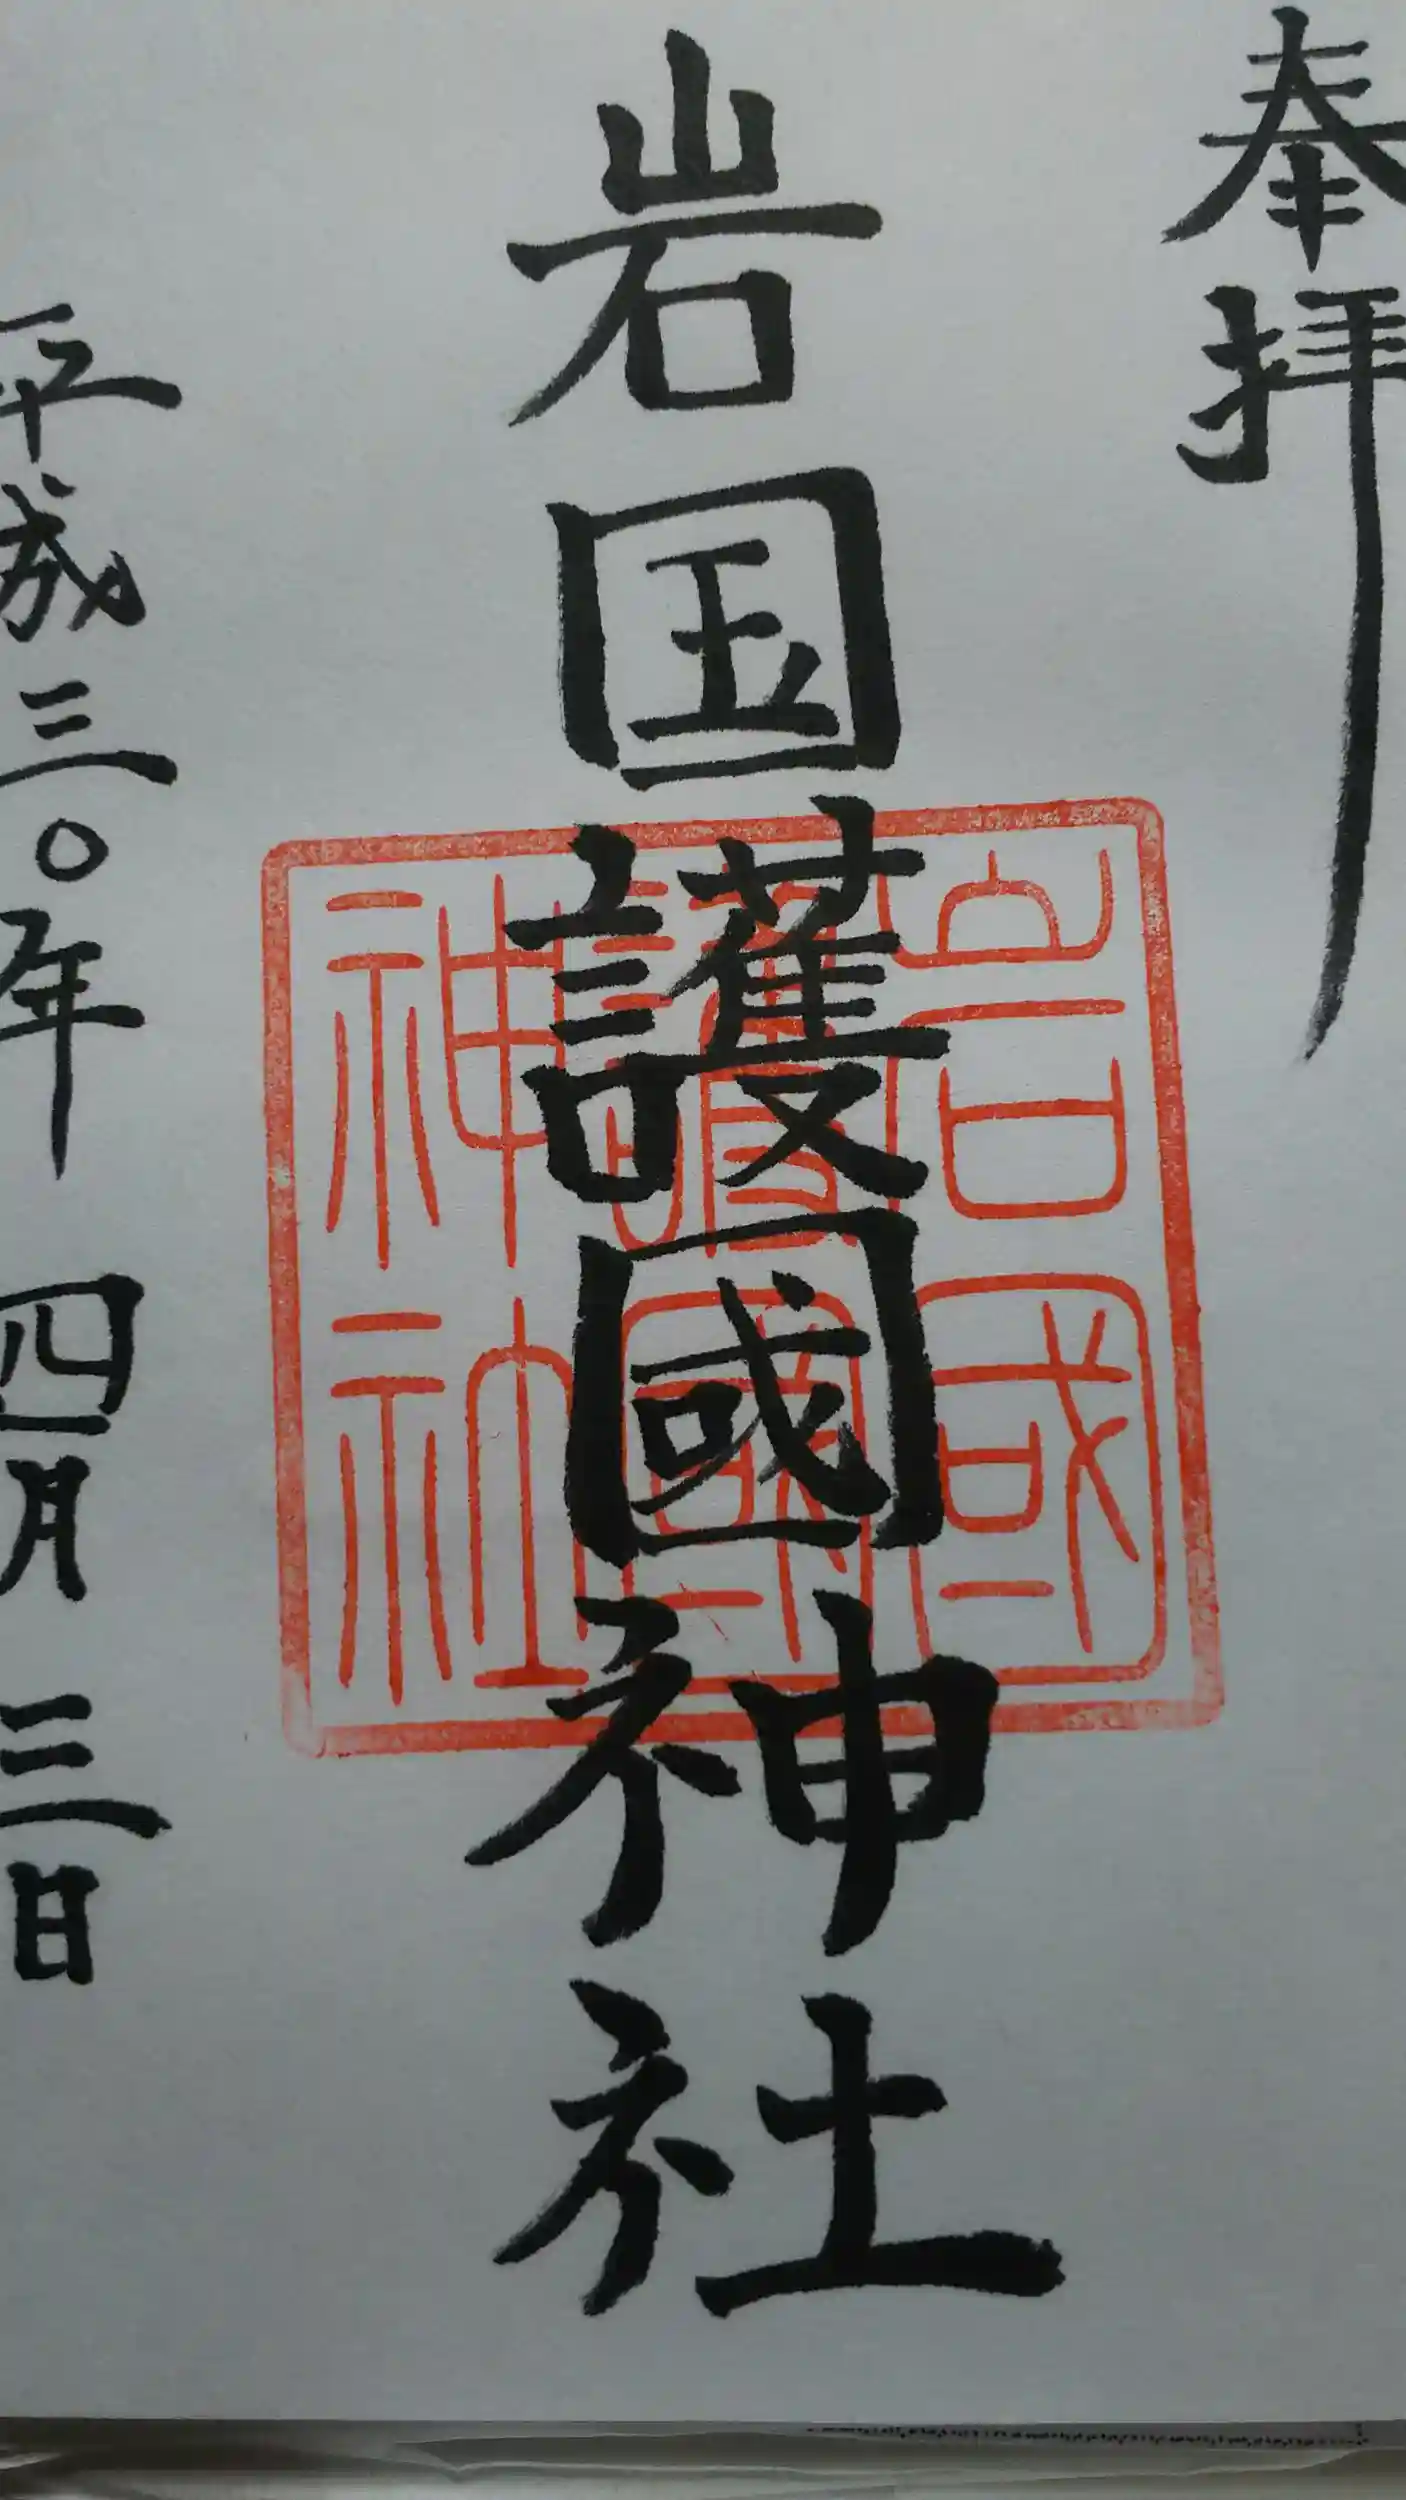 奉拝
岩国護國神社
岩國
護國
神社
平成三〇年四月三日